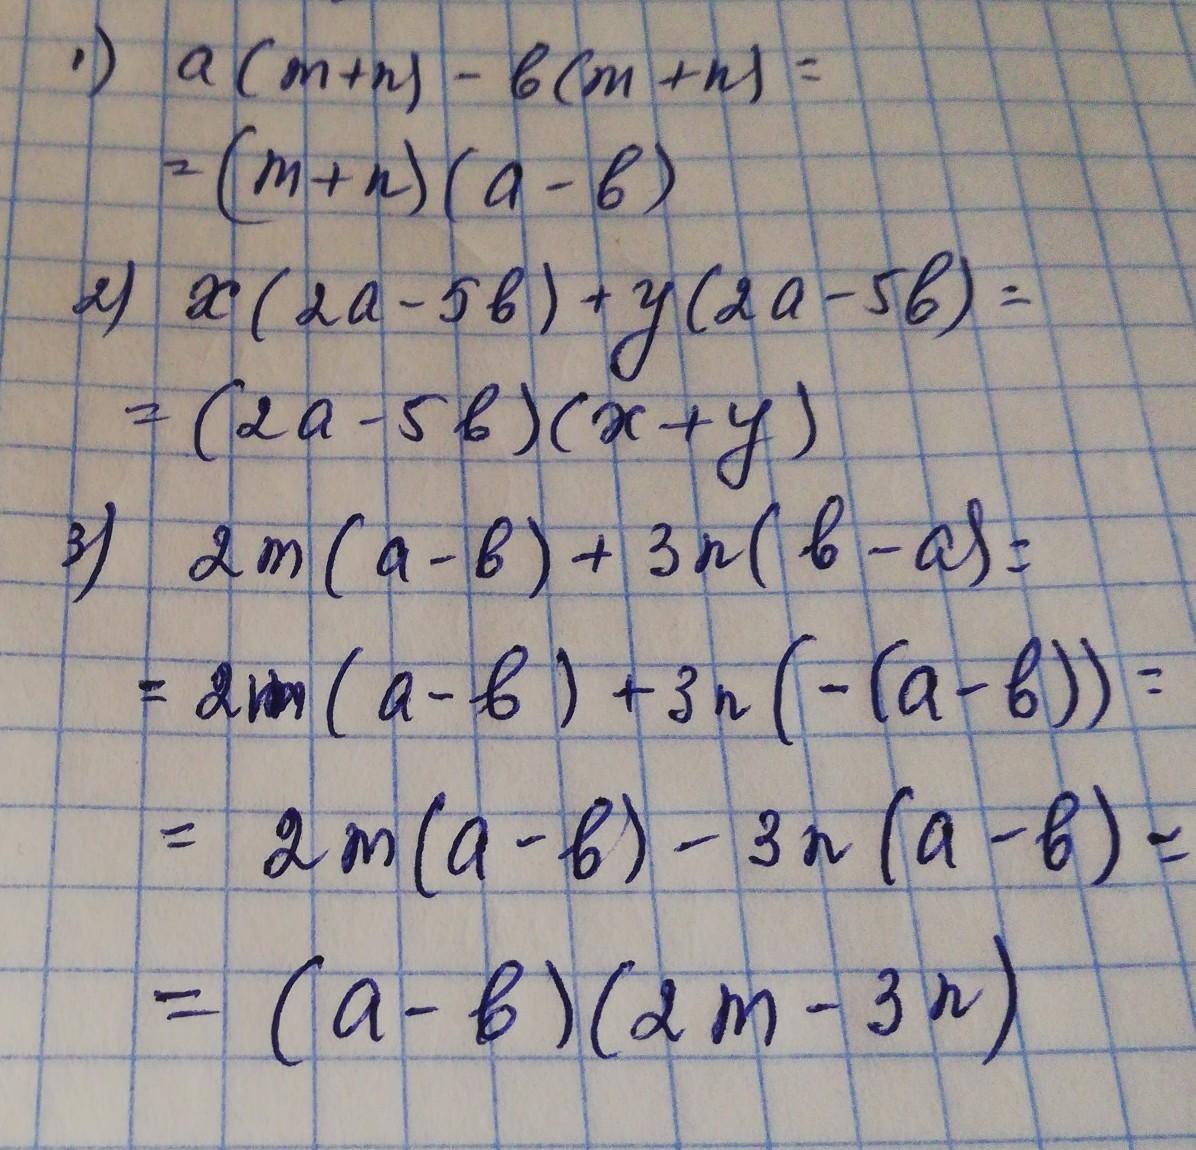 1) a(m+n) - b(m+n) =
= (m+n)(a-b)
2) x(2a-5b)+y(2a-5b) =
= (2a-5b)(x+y)
3) 2m(a-b)+3n(b-a) =
= 2m(a-b)+3n(-(a-b)) =
= 2m(a-b)-3n(a-b) =
= (a-b)(2m-3n)